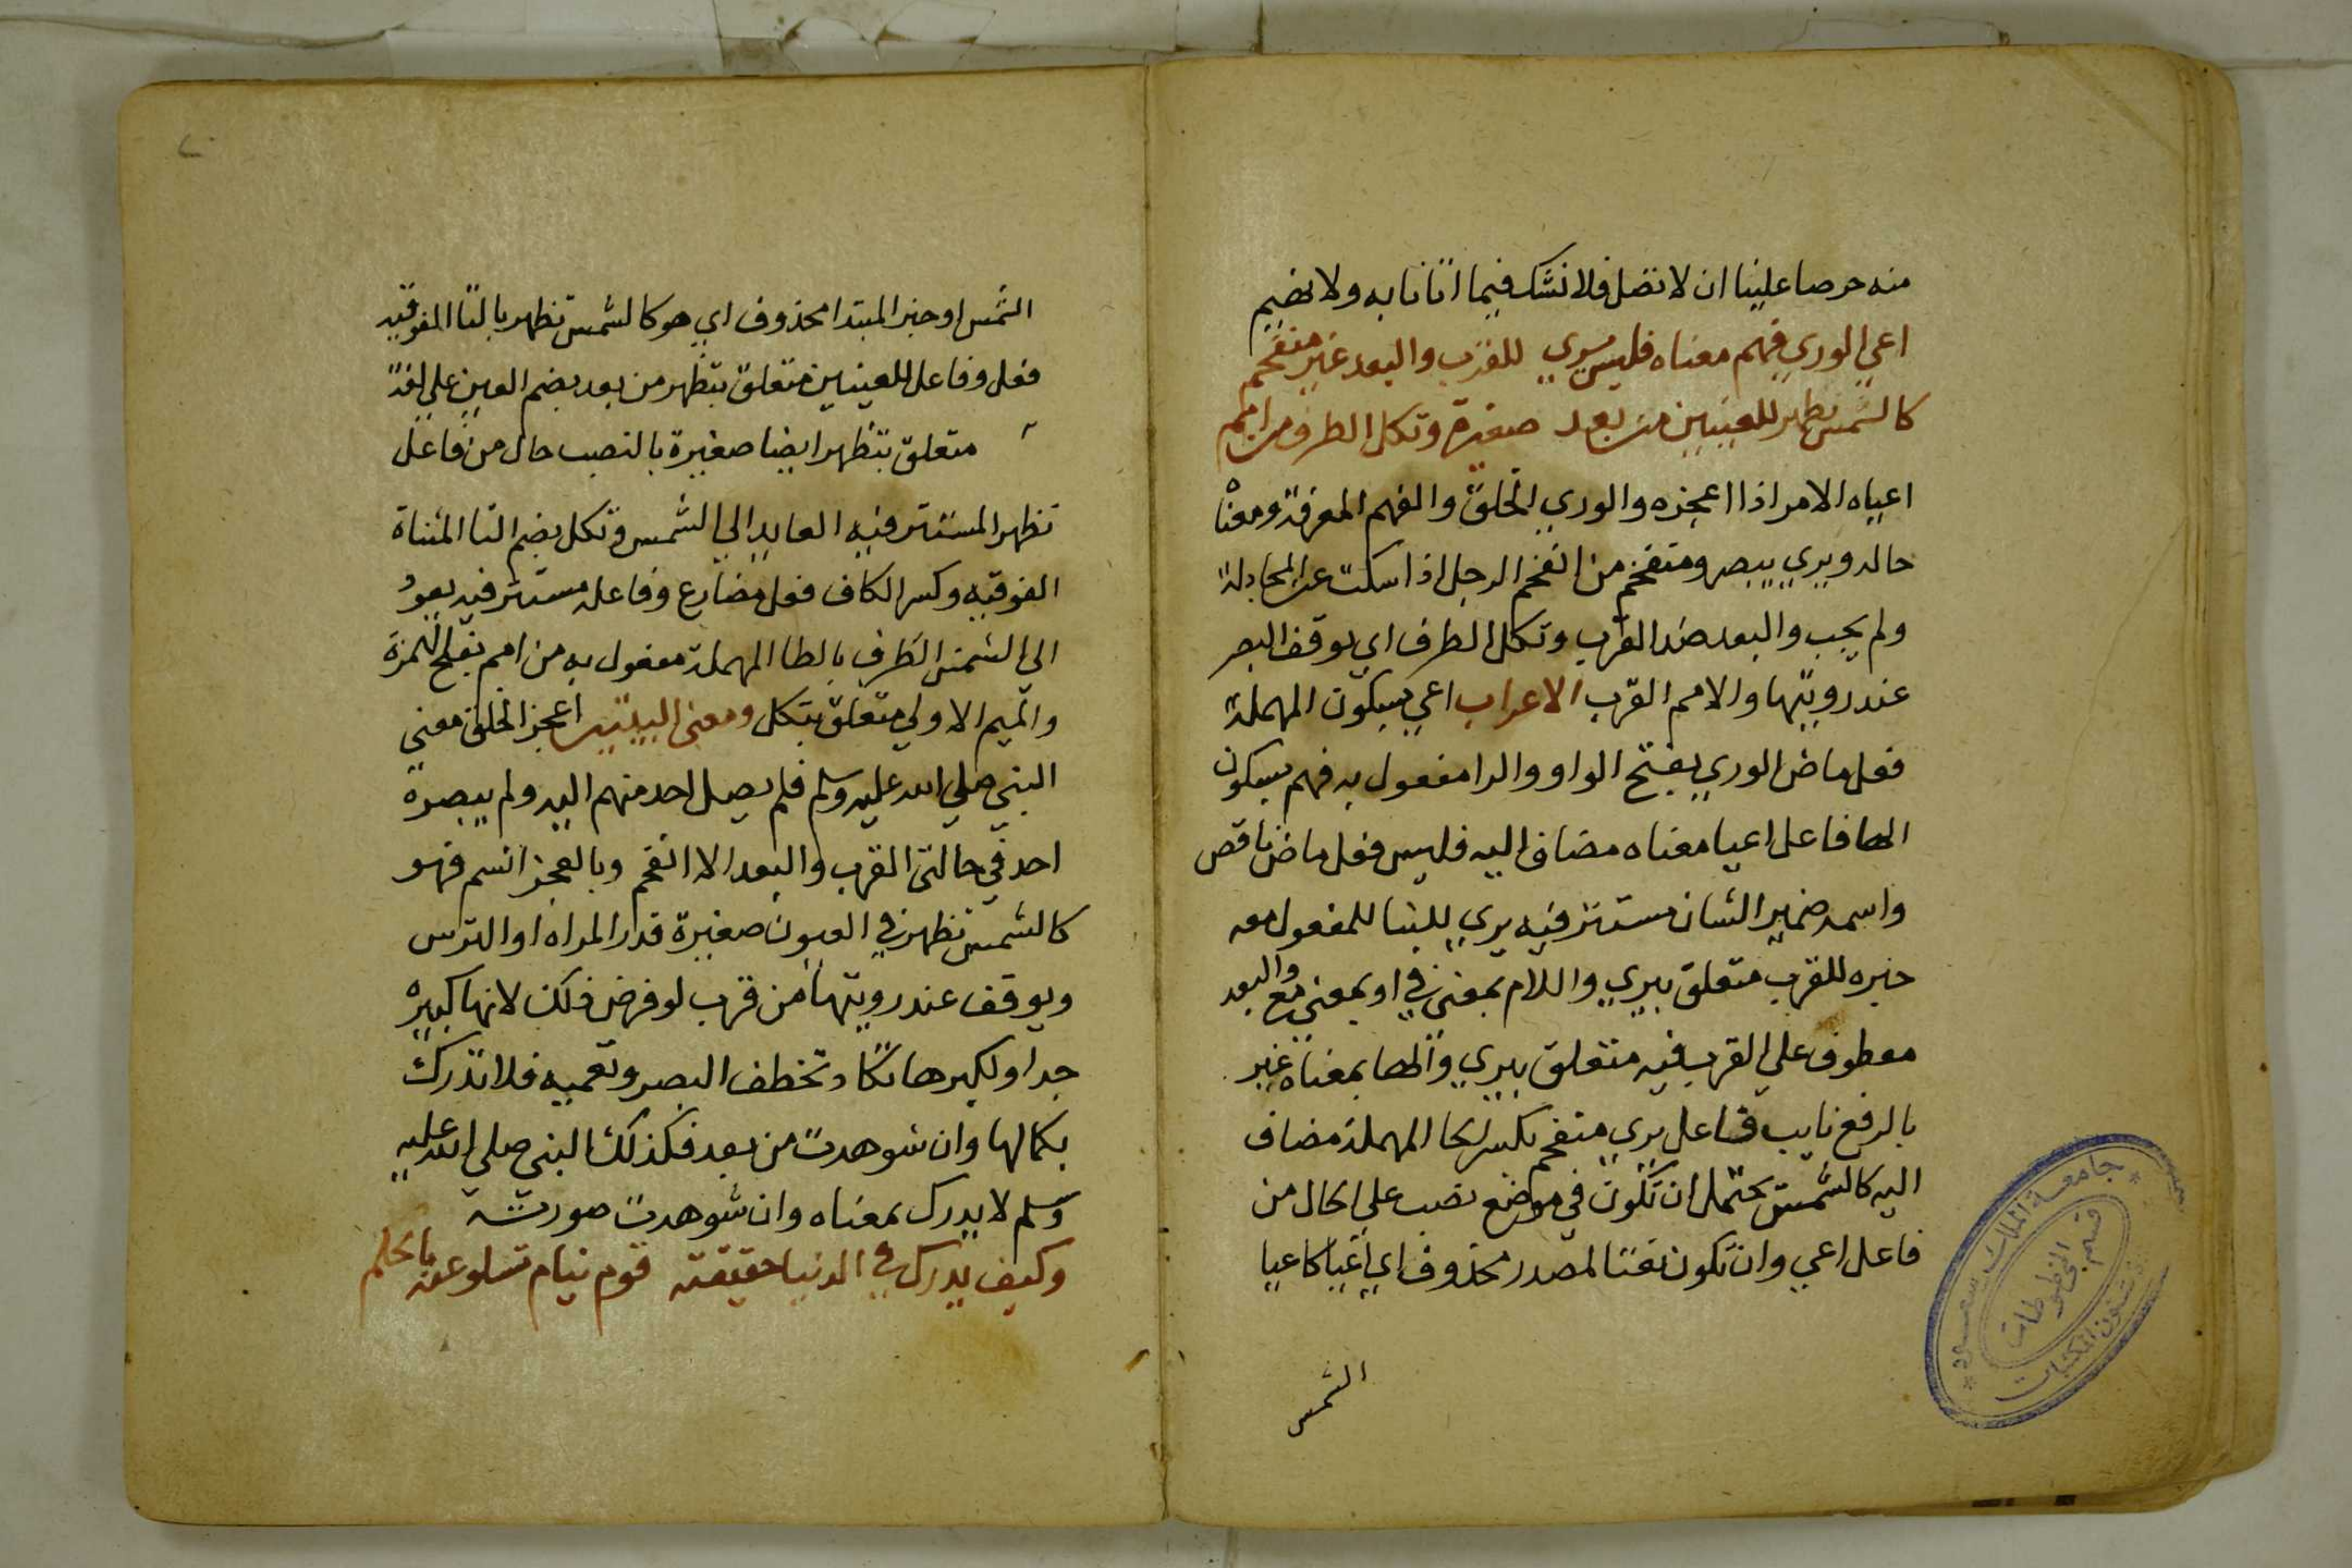 منه حرصا علينا ان لا نضل فلا نشك فيما اتانا به ولا نهيم
اعي الوري فهم معناه فليس يري للقرب والبعد غير منفحم
كالشمس تظهر للعينين من بعد صغيرة وتكل الطرف من امم
اعياه الامر اذا اعجزه والوري الخلق والفهم المعرفة ومعناه
حاله ويري يبصر ومنفحم من انفحم الرجل اذا سكت عن المجادلة
ولم يجب والبعد ضد القرب وتكل الطرف اي يوقف البصر
عند رويتها والامم القرب الاعراب اعي بسكون المهملة
فعل ماض الوري بفتح الواو والرا مفعول به فهم بسكون
الها فاعل اعيا معناه مضاف اليه فليس فعل ماض ناقص
واسمه ضمير الشان مستتر فيه يري بالبنا للمفعول معه
خبره للقرب متعلق بيري واللام بمعني في او بمعني مع والبعد
معطوف علي القرب فيه متعلق بيري والها بمعناه غير
بالرفع نايب فاعل يري منفحم بكسر الحا المهملة مضاف
اليه كالشمس يحتمل ان تكون في موضع نصب علي الحال من
فاعل اعي وان تكون نعتا لمصدر محذوف اي اعيا كاعيا
الشمس
الشمس او خبر المبتدا محذوف اي هو كالشمس تظهر بالتا الفوقيه
فعل وفاعل للعينين متعلق بتظهر من بعد بضم العين علي لغة
متعلق بتظهر ايضا صغيرة بالنصب حال من فاعل
تظهر المستتر فيه العايد الي الشمس وتكل بضم التا المثناة
الفوقيه وكسر الكاف فعل مضارع وفاعله مستتر فيه يعود
الي الشمس الطرف بالطا المهملة مفعول به من امم بفتح الهمزة
والميم الاولي متعلق بتكل ومعني البيتين اعجز الخلق معني
النبي صلي الله عليه وسلم فلم يصل احد منهم اليه ولم يبصره
احد في حالتي القرب والبعد الا انفحم وبالعجز اتسم فهو
كالشمس تظهر في العيون صغيرة قدر المراه او الترس
ويوقف عند رويتها من قرب لو فرض ذلك لانها كبيره
جدا ولكبرها تكاد تخطف البصر وتعميه فلا تدرك
بكمالها وان شوهدت من بعد فكذلك النبي صلي الله عليه
وسلم لا يدرك بمعناه وان شوهدت صورته
وكيف يدرك في الدنيا حقيقته قوم نيام تسلوا عنه بالحلم
جامعة الملك سعود
قسم المخطوطات
شئون المكتبات